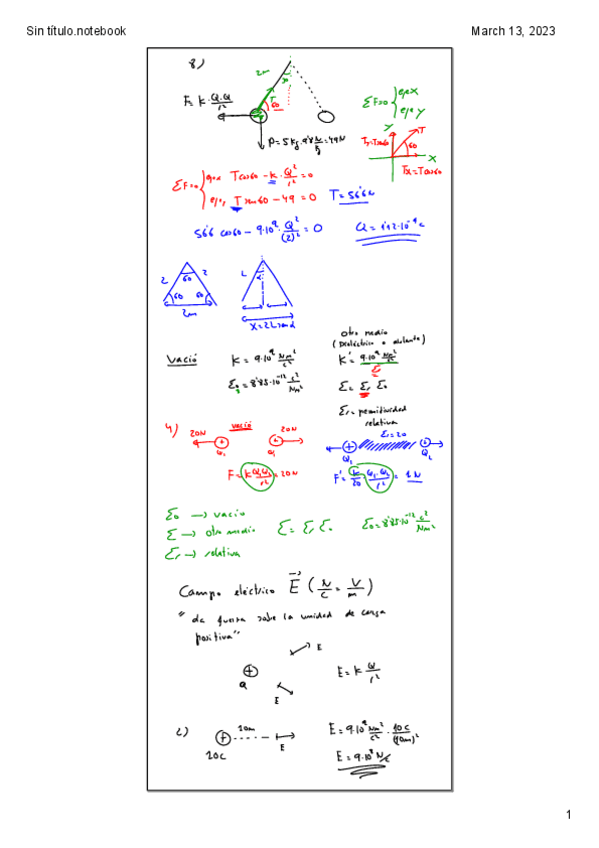 Sin título.notebook
March 13, 2023
8)
2m
30
F = K · Q·Q/r²
T
60
P = 5 Kg · 9'8 N/Kg = 49 N
ΣF=0 { eje X
eje Y
Y
Ty=Tsen60
T
60
X
Tx = Tcos60
ΣF=0 { eje x Tcos60 - K · Q²/r² = 0
eje y T sen60 - 49 = 0
T = 56'6 N
56'6 cos60 - 9·10⁹ · Q²/(2)² = 0
2
60
2
60
60
2m
L
α
X = 2L sen α
Vació
K = 9·10⁹ Nm²/C²
ε₀ = 8'85·10⁻¹² C²/Nm²
otro medio
(Dieléctrico o aislante)
K' = 9·10⁹ Nm²/C²
εr
ε = εr ε₀
εr = permitividad
relativa
4)
20N
vació
20N
Q₂
Q₁
F = K Q₁Q₂/r² = 20N
εr = 20
Q₁
Q₂
F' = K/20 · Q₁·Q₂/r² = 1 N
ε₀ → vació
ε → otro medio
ε = εr ε₀
ε₀ = 8'85·10⁻¹² C²/Nm²
εr → relativa
Campo eléctrico E⃗ ( N/C = V/m )
" da fuerza sobre la unidad de carga
positiva"
E
Q
E
E = K Q/r²
10m
10C
E
E = 9·10⁹ Nm²/C² · 10C/(10m)²
E = 9·10⁸ N/C
1